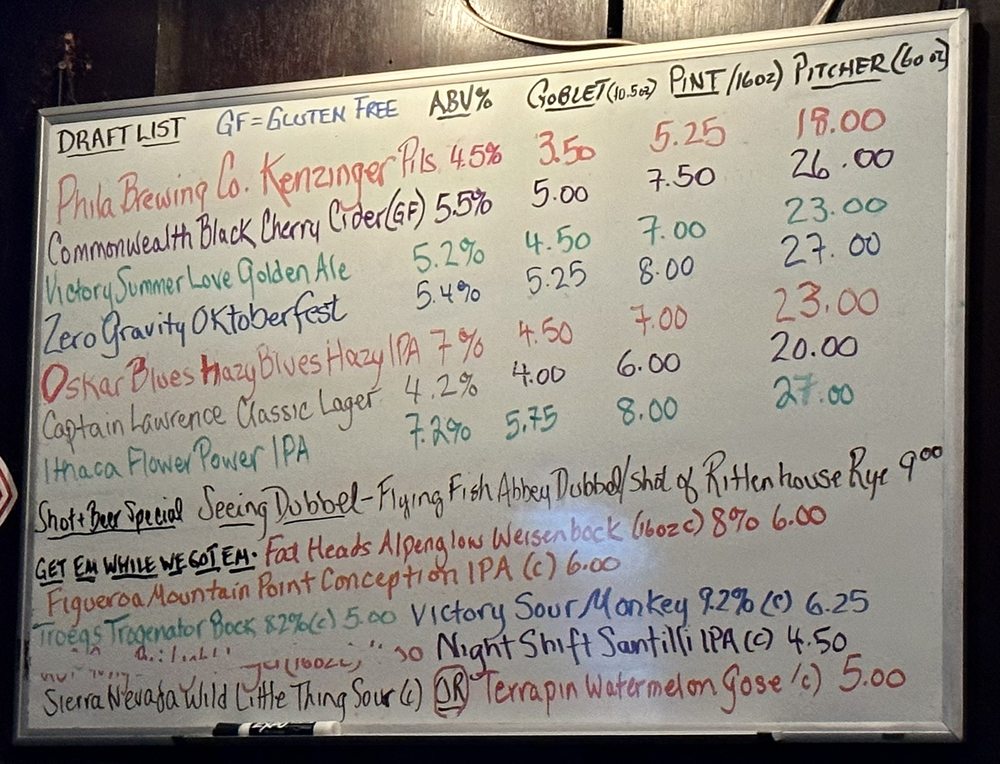 DRAFT LIST GF = GLUTEN FREE ABV% GOBLET (10.5oz) PINT/16oz) PITCHER (60oz)
Phila Brewing Co. Kenzinger Pils 4.5% 3.50 5.25 18.00
Commonwealth Black Cherry Cider (GF) 5.5% 5.00 7.50 26.00
Victory Summer Love Golden Ale 5.2% 4.50 7.00 23.00
Zero Gravity Oktoberfest 5.4% 5.25 8.00 27.00
Oskar Blues Hazy Blues Hazy IPA 7% 4.50 7.00 23.00
Captain Lawrence Classic Lager 4.2% 4.00 6.00 20.00
Ithaca Flower Power IPA 7.2% 5.75 8.00 27.00
Shot + Beer Special Seeing Dubbel - Flying Fish Abbey Dubbel/shot of Rittenhouse Rye 9.00
GET EM WHILE WE GOT EM. Fat Heads Alpenglow Weisenbock (16oz c) 8% 6.00
Figueroa Mountain Point Conception IPA (c) 6.00
Troegs Trogenator Bock 8.2% (c) 5.00 Victory Sour Monkey 9.2% (c) 6.25
(16oz Night Shift Santilli IPA (c) 4.50
Sierra Nevada Wild Little Thing Sour (c) OR Terrapin Watermelon Gose (c) 5.00
EXPO